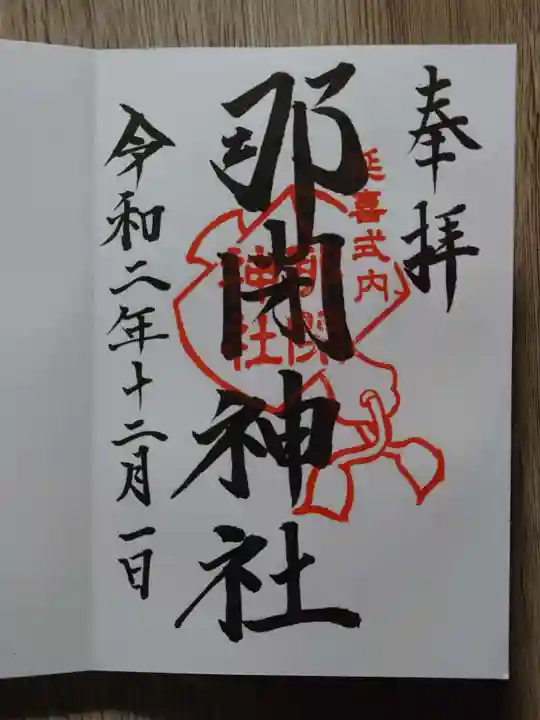 奉拝
延喜式内
那閇神社
那閇神社
令和二年十二月一日